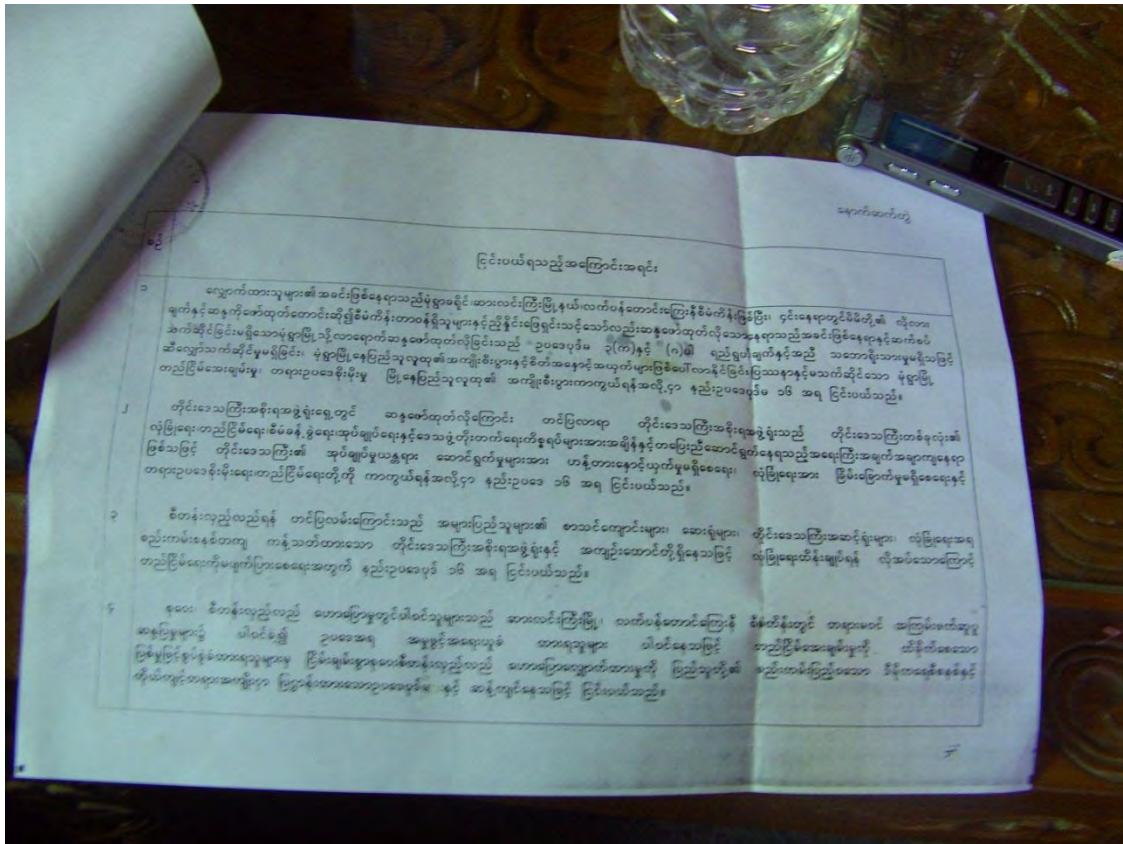 နောက်ဆက်တွဲ
စဉ်
ငြင်းပယ်ရသည့်အကြောင်းအရင်း
၁
လျှောက်ထားသူများ၏အခင်းဖြစ်နေရာသည်မုံရွာခရိုင်၊ဆားလင်းကြီးမြို့နယ်၊လက်ပန်တောင်းကြေးနီစီမံကိန်းဖြစ်ပြီး၊ ၄င်းနေရာတွင်မိမိတို့၏ လိုလား
ချက်နှင့်ဆန္ဒကိုဖော်ထုတ်တောင်းဆို၍စီမံကိန်းတာဝန်ရှိသူများနှင့်ညှိနှိုင်းဖြေရှင်းသင့်သော်လည်းဆန္ဒဖော်ထုတ်လိုသောနေရာသည်အခင်းဖြစ်နေရာနှင့်ဆက်စပ်
သက်ဆိုင်ခြင်းမရှိသောမုံရွာမြို့သို့လာရောက်ဆန္ဒဖော်ထုတ်လိုခြင်းသည် ဥပဒေပုဒ်မ ၃(က)နှင့် (ဂ)၏ ရည်ရွယ်ချက်နှင့်အညီ သဘောရိုးသားမှုမရှိသဖြင့်
ဆီလျှော်သက်ဆိုင်မှုမရှိခြင်း၊ မုံရွာမြို့နေပြည်သူလူထု၏အကျိုးစီးပွားနှင့်စိတ်အနှောင့်အယှက်များဖြစ်ပေါ်လာနိုင်ခြင်းပြဿနာနှင့်မသက်ဆိုင်သော မုံရွာမြို့
တည်ငြိမ်အေးချမ်းမှု၊ တရားဥပဒေစိုးမိုးမှု မြို့နေပြည်သူလူထု၏ အကျိုးစီးပွားကာကွယ်ရန်အလို့ငှာ နည်းဥပဒေပုဒ်မ ၁၆ အရ ငြင်းပယ်သည်။
၂
တိုင်းဒေသကြီးအစိုးရအဖွဲ့ရုံးရှေ့တွင် ဆန္ဒဖော်ထုတ်လိုကြောင်း တင်ပြလာရာ တိုင်းဒေသကြီးအစိုးရအဖွဲ့ရုံးသည် တိုင်းဒေသကြီးတစ်ခုလုံး၏
လုံခြုံရေး၊တည်ငြိမ်ရေး၊စီမံခန့်ခွဲရေး၊အုပ်ချုပ်ရေးနှင့်ဒေသဖွံ့ဖြိုးတက်ရေးကိစ္စရပ်များအားအချိန်နှင့်တပြေးညီဆောင်ရွက်နေရသည့်အရေးကြီးအချက်အချာကျနေရာ
ဖြစ်သဖြင့် တိုင်းဒေသကြီး၏ အုပ်ချုပ်မှုယန္တရား ဆောင်ရွက်မှုများအား ဟန့်တားနှောင့်ယှက်မှုမရှိစေရေး၊ လုံခြုံရေးအား ခြိမ်းခြောက်မှုမရှိစေရေးနှင့်
တရားဥပဒေစိုးမိုးရေး၊တည်ငြိမ်ရေးတို့ကို ကာကွယ်ရန်အလို့ငှာ နည်းဥပဒေ ၁၆ အရ ငြင်းပယ်သည်။
၃
စီတန်းလှည့်လည်ရန် တင်ပြလမ်းကြောင်းသည် အများပြည်သူများ၏ စာသင်ကျောင်းများ၊ ဆေးရုံများ၊ တိုင်းဒေသကြီးအဆင့်ရုံးများ၊ လုံခြုံရေးအရ
စည်းကမ်းစနစ်တကျ ကန့်သတ်ထားသော တိုင်းဒေသကြီးအစိုးရအဖွဲ့ရုံးနှင့် အကျဉ်းထောင်တို့ရှိနေသဖြင့် လုံခြုံရေးထိန်းချုပ်ရန် လိုအပ်သောကြောင့်
တည်ငြိမ်ရေးကိုမပျက်ပြားစေရေးအတွက် နည်းဥပဒေပုဒ် ၁၆ အရ ငြင်းပယ်သည်။
၄
စီတန်းလှည့်လည် ဟောပြောမှုတွင်ပါဝင်သူများသည် ဆားလင်းကြီးမြို့၊ လက်ပန်တောင်းကြေးနီ စီမံကိန်းတွင် တရားမဝင် အကြမ်းဖက်ဆူပူ
ဆန္ဒပြမှုများ၌ ပါဝင်ခဲ့၍ ဥပဒေအရ အမှုဖွင့်အရေးယူခံ ထားရသူများ ပါဝင်နေသဖြင့် တည်ငြိမ်အေးချမ်းမှုကို ထိခိုက်စေသော
ပြည်သူတို့၏
ငြင်းပယ်သည်။